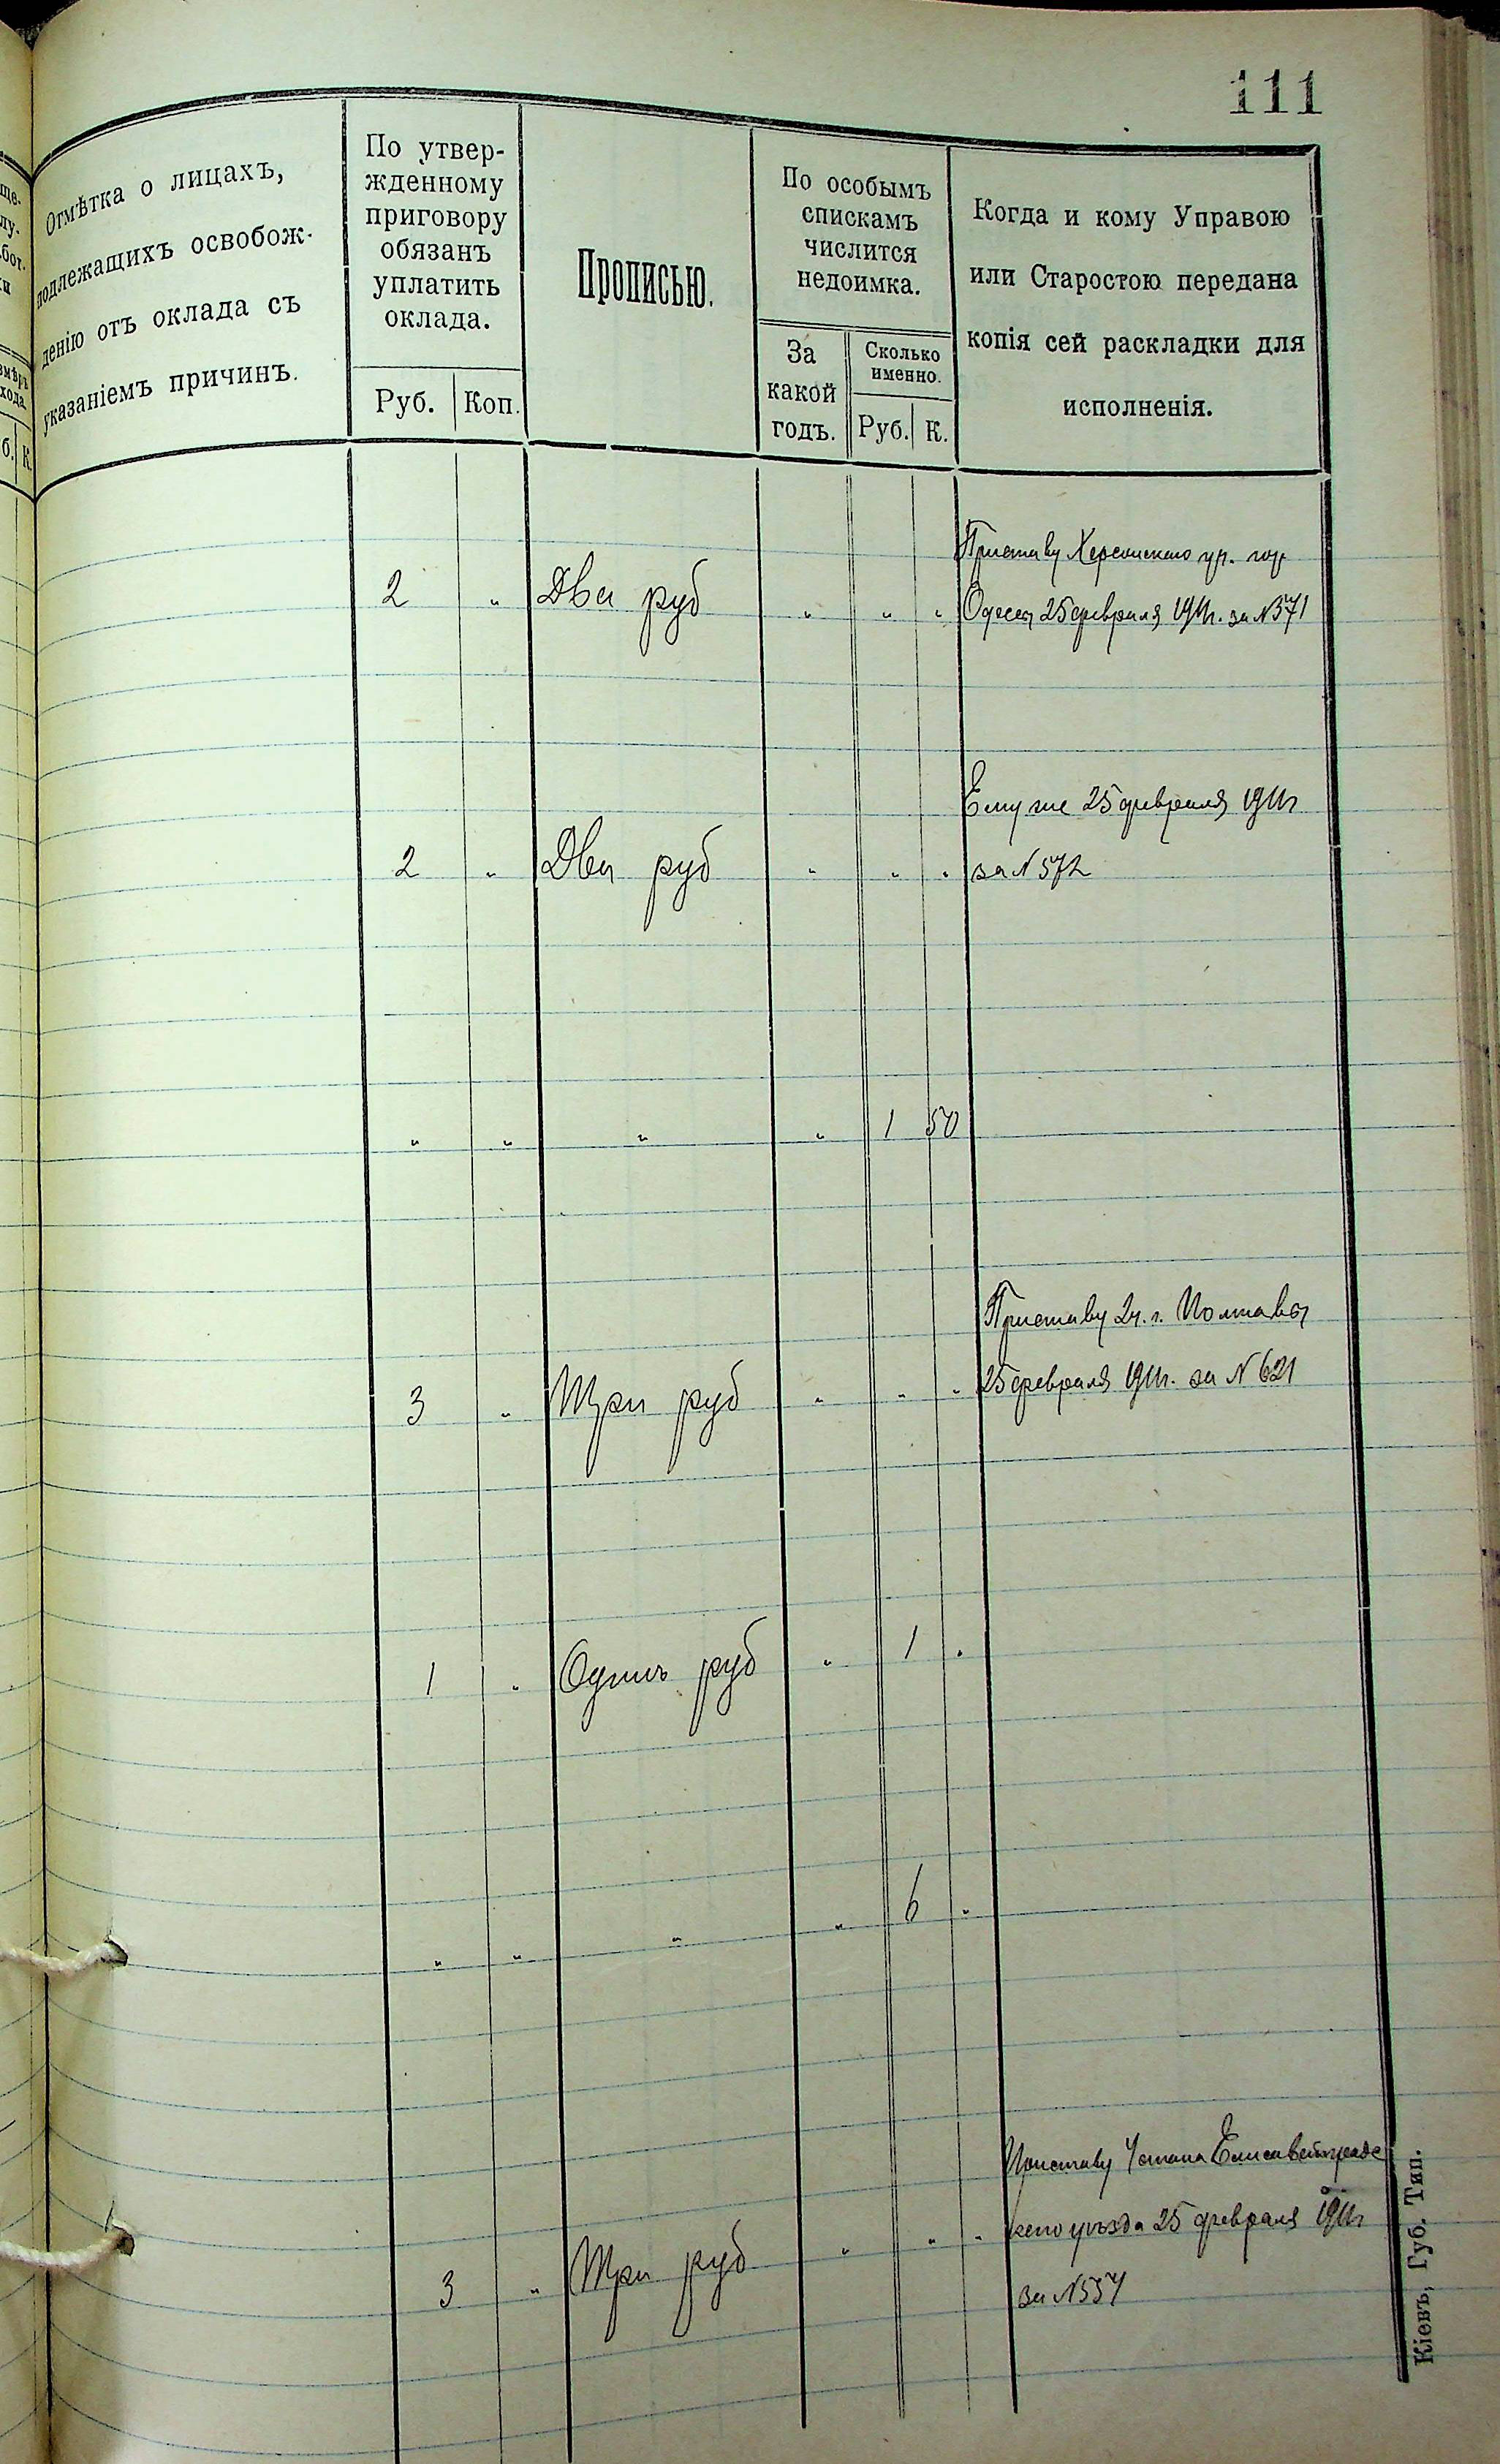 111
Отмѣтка о лицахъ,
подлежащихъ освобож-
денію отъ оклада съ
указаніемъ причинъ.
По утвер-
жденному
приговору
обязанъ
уплатить
оклада.
Руб. Коп.
Прописью.
По особымъ
спискамъ
числится
недоимка.
За
какой
годъ.
Сколько
именно.
Руб. К.
Когда и кому Управою
или Старостою передана
копія сей раскладки для
исполненія.
Приставу Херсонскаго уч. гор.
2 " Два руб " " " Одессы 25 февраля 1911г. за №571
Ему же 25 февраля 1911г
2 " Два руб " " " за №572
" " " " 1 50
Приставу 2ч. г. Полтавы
3 " Три руб " " " 25 февраля 1911г. за №621
1 " Одинъ руб " 1 "
" " " " 6 "
Приставу стана Елисаветградс
каго уѣзда 25 февраля 1911г
3 " Три руб " " "
за №
Кіевъ, Губ. Тип.